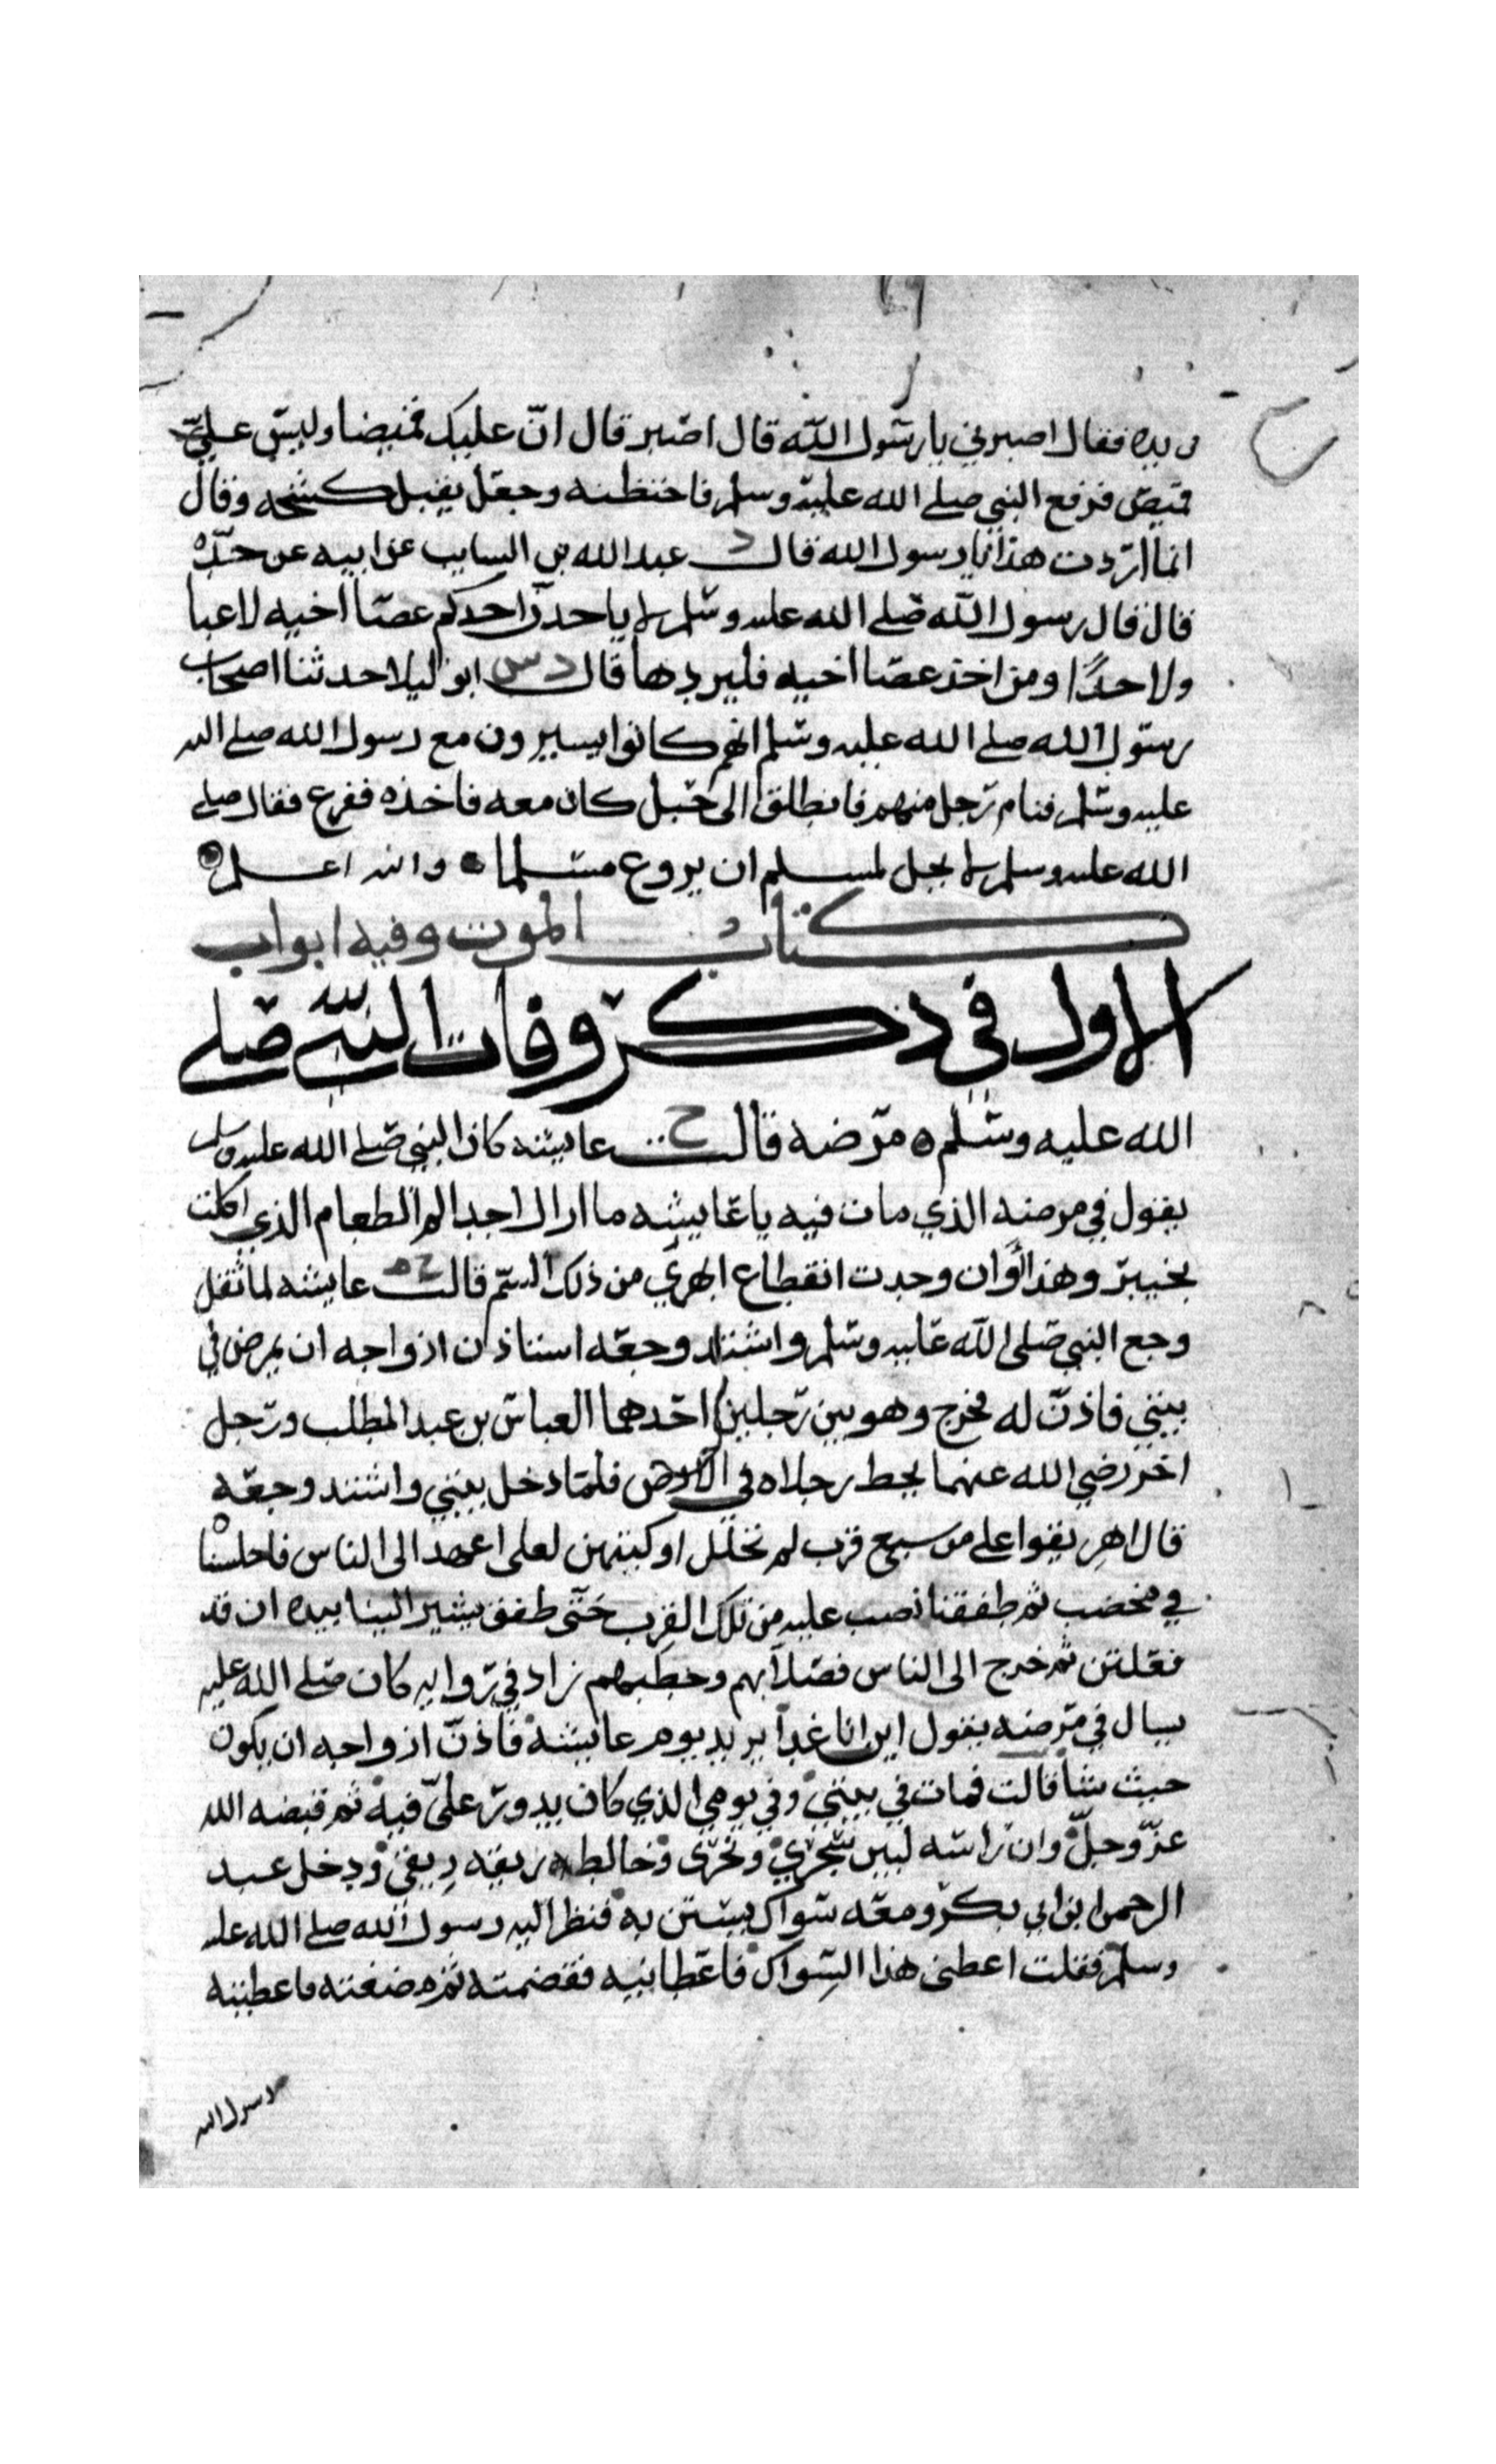 بيده فقال اصبرني يا رسول الله قال اصبر قال ان عليك قميصا وليس علي
قميص فرفع النبي صلى الله عليه وسلم فاحتضنه وجعل يقبل كشحه وقال
انما اردت هذا يا رسول الله قال د عبد الله بن السايب عن ابيه عن جده
قال قال رسول الله صلى الله عليه وسلم لا ياخذن احدكم عصا اخيه لاعبا
ولا جدا ومن اخذ عصا اخيه فليردها قال د س ابو ليلا حدثنا اصحاب
رسول الله صلى الله عليه وسلم انهم كانوا يسيرون مع رسول الله صلى الله
عليه وسلم فنام رجل منهم فانطلق الى حبل كان معه فاخذه ففزع فقال صلى
الله عليه وسلم لا يحل لمسلم ان يروع مسلما والله اعلم
كتاب الموت وفيه ابواب
الاول في ذكر وفات النبي صلى
الله عليه وسلم مرضه قالت خ عايشه كان النبي صلى الله عليه وسلم
يقول في مرضه الذي مات فيه يا عايشه ما ازال اجد الم الطعام الذي اكلت
بخيبر وهذا اوان وجدت انقطاع ابهري من ذلك السم قالت خ م عايشه لما ثقل
وجع النبي صلى الله عليه وسلم واشتد وجعه استاذن ازواجه ان يمرض في
بيتي فاذن له فخرج وهو بين رجلين احدهما العباس بن عبد المطلب ورجل
اخر رضي الله عنهما يخط رجلاه في الارض فلما دخل بيتي واشتد وجعه
قال اهريقوا علي من سبع قرب لم تحلل اوكيتهن لعلي اعهد الى الناس فاجلسنا
في مخضب ثم طفقنا نصب عليه من تلك القرب حتى طفق يشير الينا بيده ان قد
فعلتن ثم خرج الى الناس فصلا بهم وخطبهم زاد في روايه كان صلى الله عليه
يسال في مرضه يقول اين انا غدا يريد يوم عايشه فاذن ازواجه ان يكون
حيث شا قالت فمات في بيتي وفي يومي الذي كان يدور علي فيه ثم قبضه الله
عز وجل وان راسه لبين سحري ونحري وخالط ريقه ريقي ودخل عبد
الرحمن ابن ابي بكر ومعه سواك يستن به فنظر اليه رسول الله صلى الله عليه
وسلم فقلت اعطني هذا السواك فاعطانيه فقضمته ثم مضغته فاعطيته
رسول الله